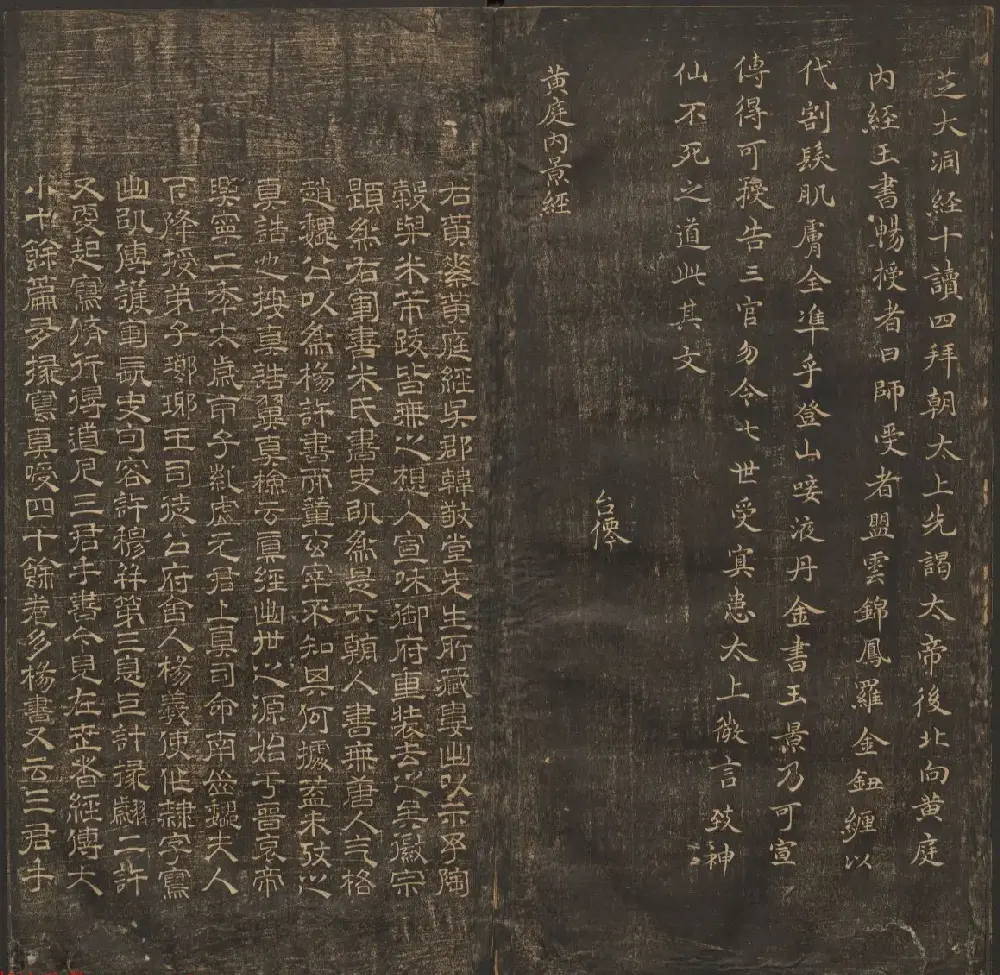 芝大洞經十讀四拜朝太上先謁太帝後北向黄庭
內經玉書暢授者曰師受者盟雲錦鳳羅金鈕纏以
代割髮肌膚全準乎登山歃液丹金書玉景乃可宣
傳得可授告三官勿令七世受冥患太上微言致神
仙不死之道此其文
黄庭內景經
台僊
右黄素黄庭經吳郡韓敬堂先生所藏嘗出以示予陶
穀與米芾跋皆無之想入宣咊御府重裝去之矣徽宗
題爲右軍書米氏書史以爲是六朝人書無唐人气格
趙魏公以爲楊許書而董宗不知其何據蓋未攷之
真誥也按真誥翼真檢云真經出世之源始于晉哀帝
興寧二秊太歲甲子紫虛元君上真司命南嶽魏夫人
下降授弟子瑯琊王司徒公府舍人楊羲使作隸字寫
出以傳護軍長史句容許穆并第三息上計掾翽二許
又更起寫脩行得道凡三君手書今見在世者經傳大
小十餘篇多掾寫真授四十餘卷多楊書又云三君手